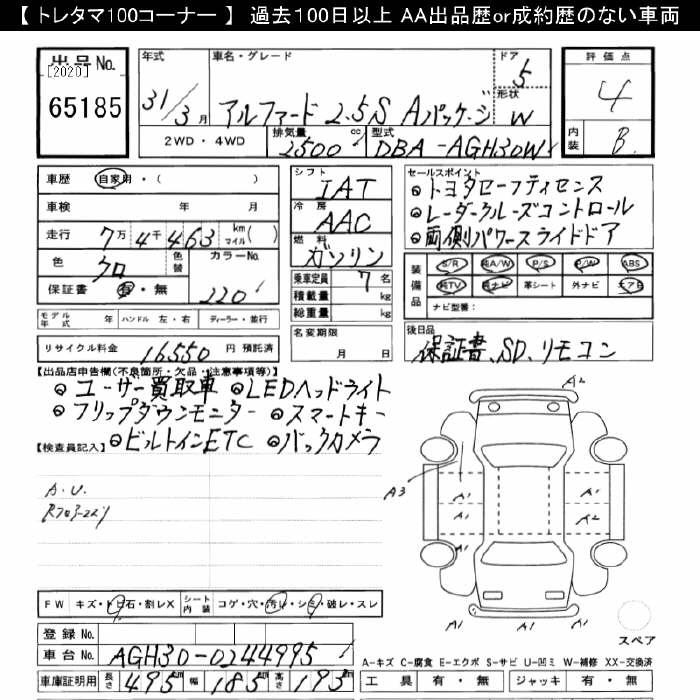 【 トレタマ100コーナー 】 過去100日以上 AA出品歴or成約歴のない車両
出品No.
[2020]
65185
年式
31/3月
車名・グレード
アルファード 2.5S Aパッケージ
ドア
5
形状
W
評価点
4
内装
B
2WD・4WD
排気量
2500 cc
型式
DBA-AGH30W
車歴 自家用・( )
車検 年 月
走行 7万4千463 km マイル( )
色 クロ 色替
カラーNo.
220
保証書 有・無
シフト
IAT
冷房
AAC
燃料
ガソリン
乗車定員 7 名
積載量 kg
総重量 kg
名変期限
月 日
セールスポイント
トヨタセーフティセンス
レーダークルーズコントロール
両側パワースライドドア
装備品
S/R 純A/W P/S P/W ABS
純TV 純ナビ 革シート 外ナビ エアB
ナビ型番:
モデル年式 年 ハンドル 左・右 ディーラー・並行
リサイクル料金 16550 円 預託済
後日品
保証書、SD、リモコン
【出品店申告欄(不良箇所・欠品・注意事項等)】
ユーザー買取車 LEDヘッドライト
フリップダウンモニター スマートキー
ビルトインETC バックカメラ
【検査員記入】
A.U.
A2
A3
A1 A1
A1 A2
A1 A1
A1 A1
スペア
FW キズ・トビ石・割レX シート内装 コゲ・穴・汚レ・シミ・破レ・スレ
登録No.
車台No. AGH30-0244995
車庫証明用 長さ 495 幅 185 高さ 193
A-キズ C-腐食 E-エクボ S-サビ U-凹ミ W-補修 XX-交換済
工具 有・無 ジャッキ 有・無